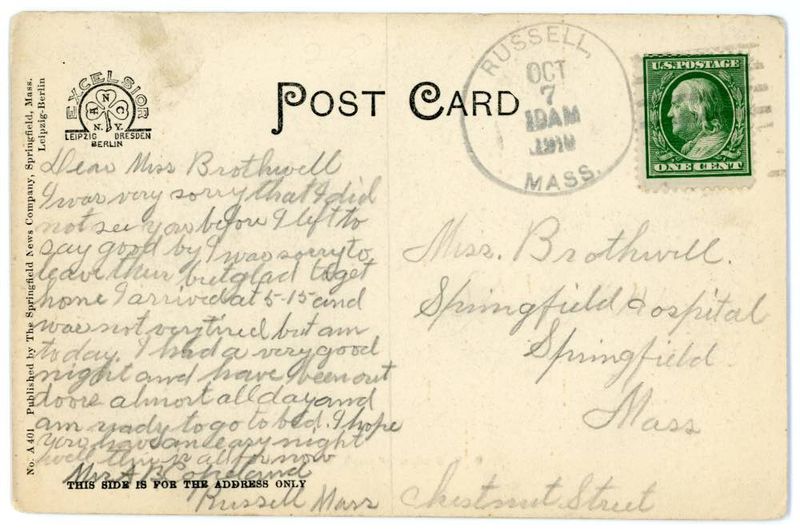 No. A 401 Published by The Springfield News Company, Springfield, Mass.
Leipzig-Berlin
EXCELSIOR
A N C
N.Y.
LEIPZIG DRESDEN
BERLIN
POST CARD
RUSSELL,
OCT
7
10AM
1910
MASS.
U.S. POSTAGE
ONE CENT
Dear Miss Brothwell
I was very sorry that I did
not see you before I left to
say good by I was sorry to
leave them but glad to get
home I arrived at 5-15 and
was not very tired but am
to day. I had a very good
night and have been out
doors almost all day and
am ready to go to bed. I hope
you have an easy night
well this is all for now
Mrs A B
Russell Mass
THIS SIDE IS FOR THE ADDRESS ONLY
Miss. Brothwell.
Springfield Hospital
Springfield
Mass
Chestnut Street